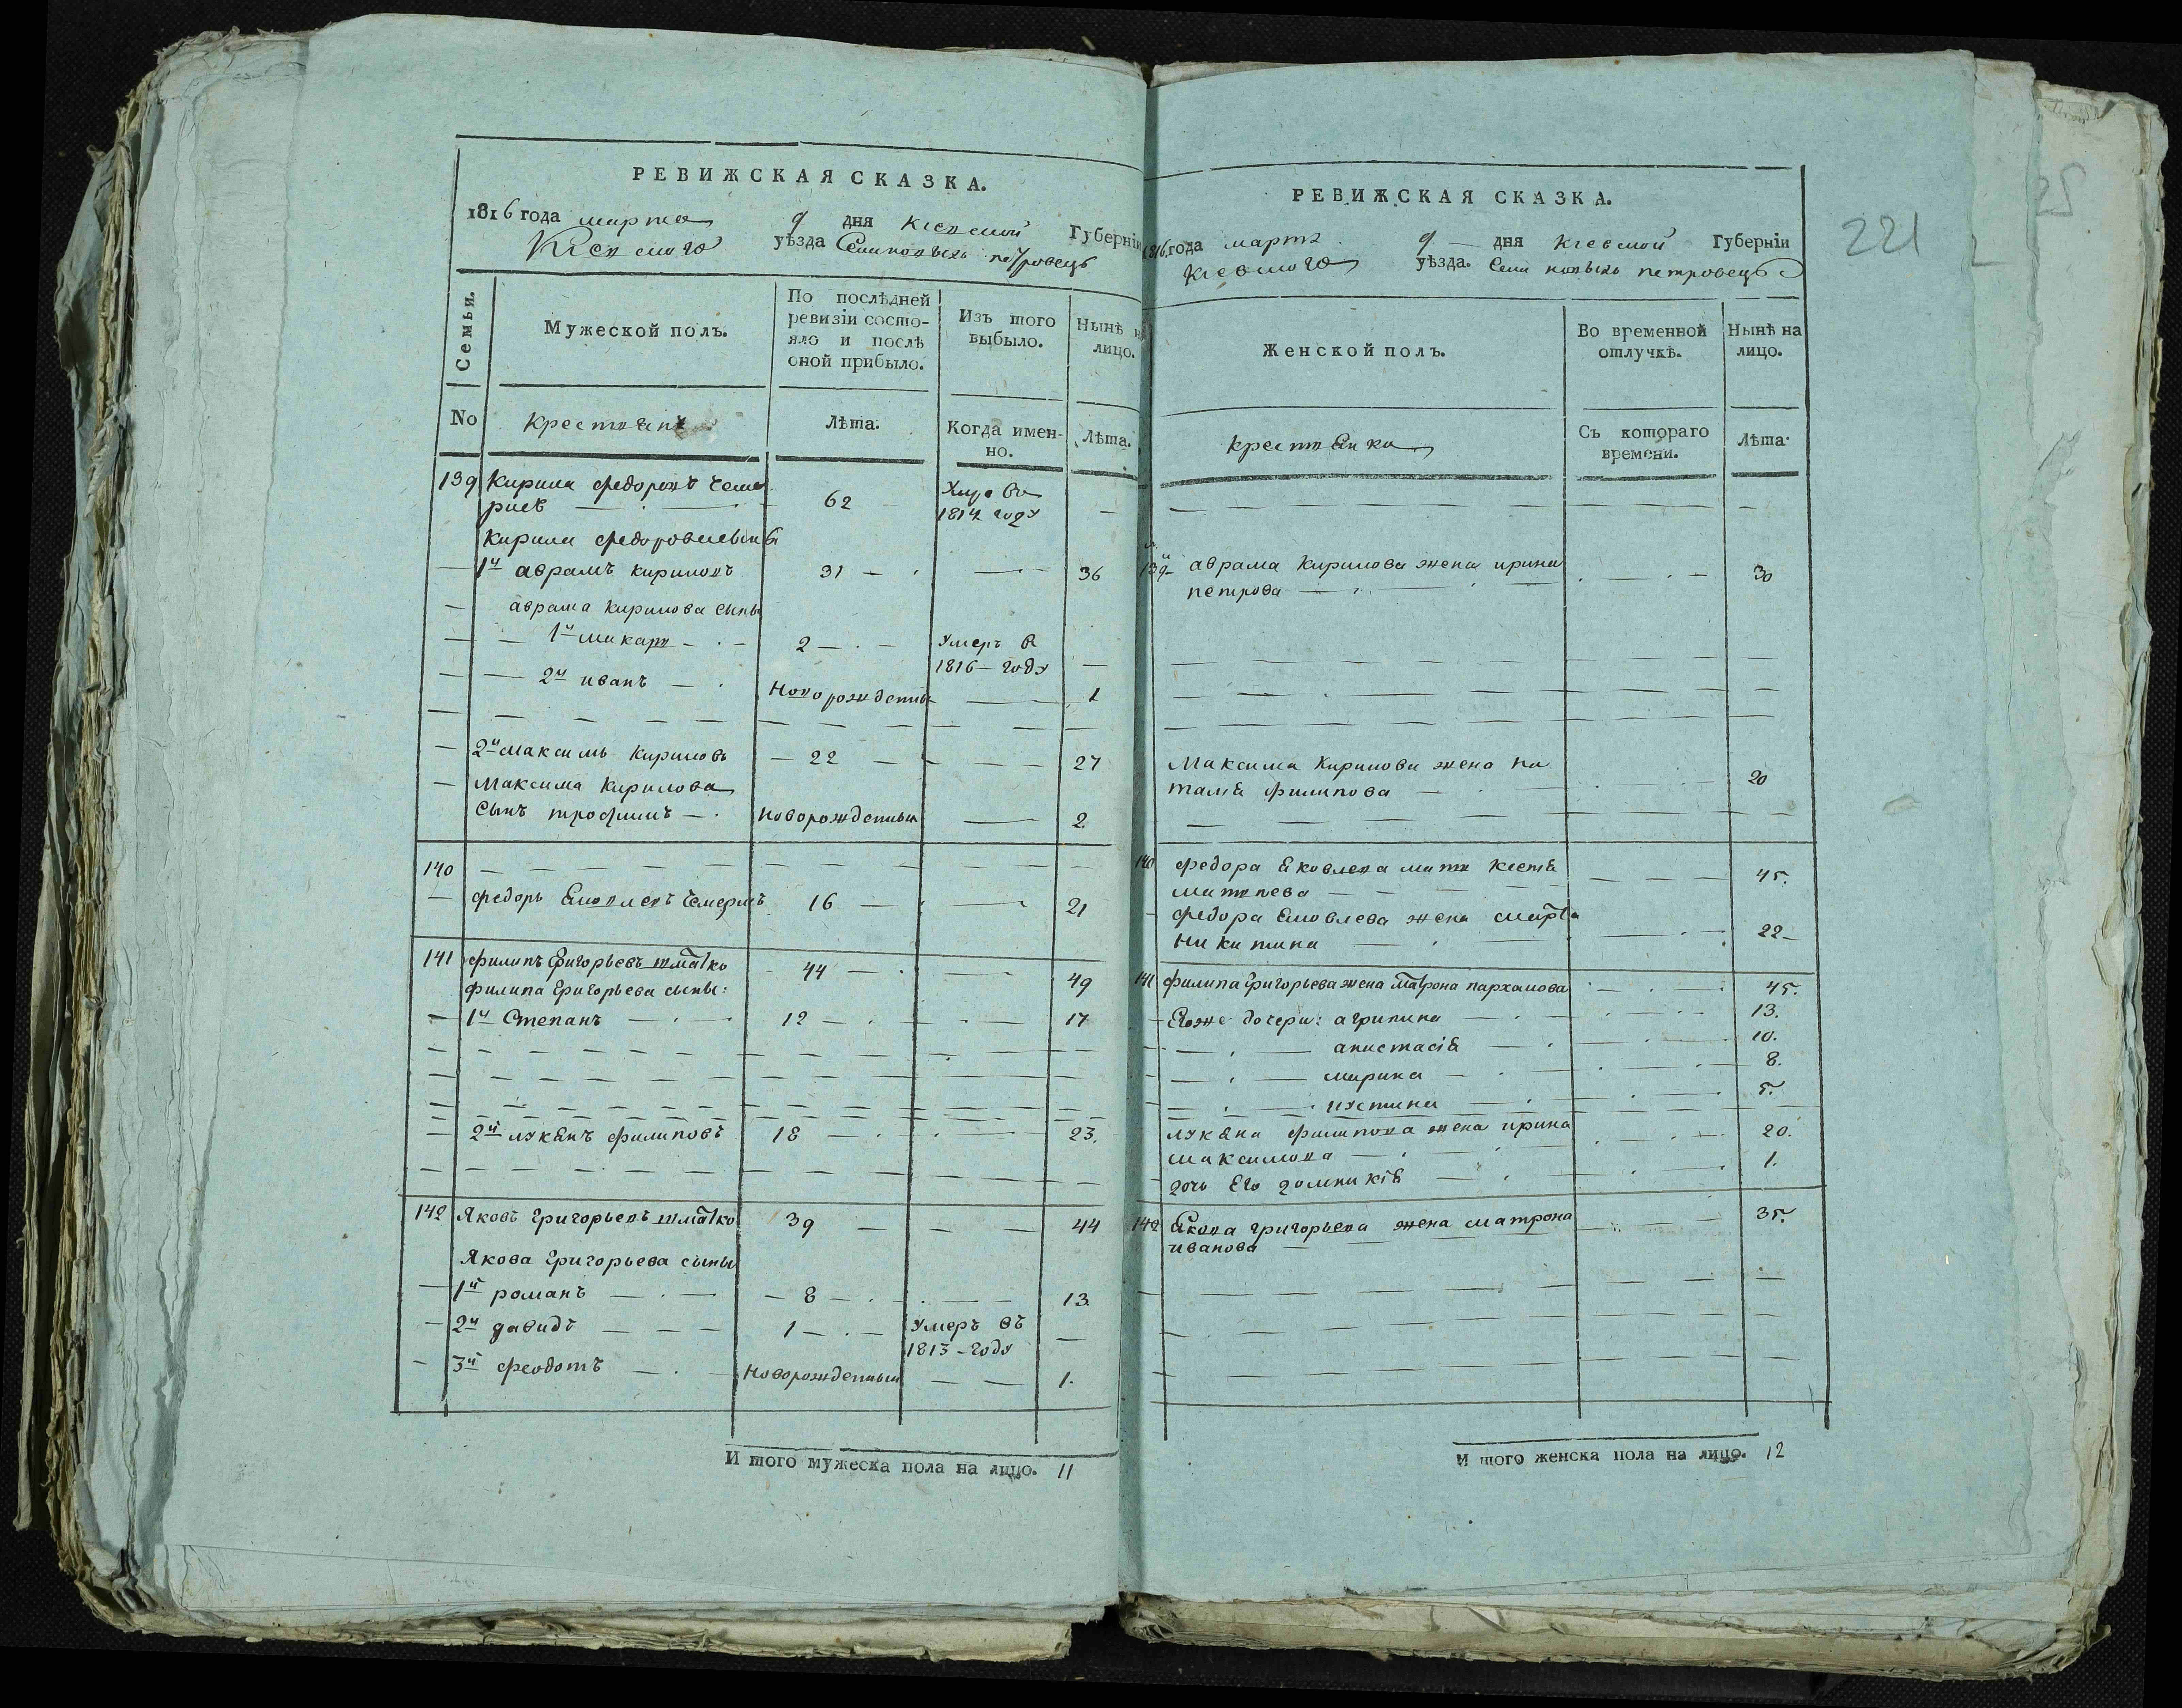 РЕВИЖСКАЯ СКАЗКА.
1816 года марта 9 дня Киевской Губерніи
Киевского уѣзда Села новыхъ петровецъ
Семья.
Мужеской полъ.
По послѣдней
ревизіи состо-
яло и послѣ
оной прибыло.
Изъ того
выбыло.
Нынѣ на
лицо.
No
Крестьяне
Лѣта.
Когда имен-
но.
Лѣта.
139 Кирила федоровъ Чеме
рисъ 62
1814 году
Кирила федорова сыны
1й аврамъ кириловъ 31 36
аврама кирилова сыны
1й макаръ 2 Умеръ в
1816 году
2й иванъ Новорожденны 1
2й максимъ Кириловъ 22 27
Максима Кирилова
Сынъ трофимъ Новорожденныи 2
140
федоръ Яковлевъ Чемерисъ 16 21
141 филипъ Григорьевъ шматко 44 49
филипа Григорьева сыны:
1й Степанъ 12 17
2й лукянъ филиповъ 18 23.
142 Яковъ Григорьевъ шматко 39 44
Якова Григорьева сыны
1й романъ 8 13.
2й давидъ 1 Умеръ въ
1813 году
3й феодотъ Новорожденныи 1.
И того мужеска пола на лицо. 11
РЕВИЖСКАЯ СКАЗКА.
1816 года марта 9 дня Киевской Губерніи
Киевского уѣзда. Села новыхъ петровецъ
221
Женской полъ.
Во временной
отлучкѣ.
Нынѣ на
лицо.
крестянка
Съ котораго
времени.
Лѣта
139 аврама Кирилова жена ирина
петрова 30
Максима Кирилова жена на
талія филипова 20
140 федора Яковлева мати Ксенія
матвева 45.
федора Яковлева жена марfа
Никитина 22
141 филипа Григорьева жена Матрона пархамова 45.
Егоже дочери: агрипина 13.
анистасія 10.
марина 8.
иустина 5.
лукяна филипова жена ирина
максимова 20.
дочь Его домникія 1.
142 Якова Григорьева жена матрона
иванова 35.
И того женска пола на лицо. 12